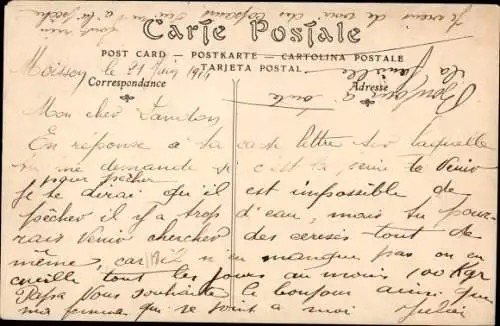 Je viens de voir des copains
sont rien à la pêche
Carte Postale
POST CARD — POSTKARTE — CARTOLINA POSTALE
TARJETA POSTAL
Correspondance
Adresse
Bonjour à toute
la famille
Moisson le 21 Juin 1914
Mon cher
En réponse à ta carte lettre sur laquelle
tu me demande si c'est la peine te venir
pour pêcher
je te dirai qu'il est impossible de
pêcher il y a trop d'eau, mais tu pour-
rais venir chercher des cerises tout de
même, car il n'en manque pas on en
cueille tout les jours au moins 100 Kgr
Papa vous souhaite le bonjour ainsi que
ma femme qui se joint a moi